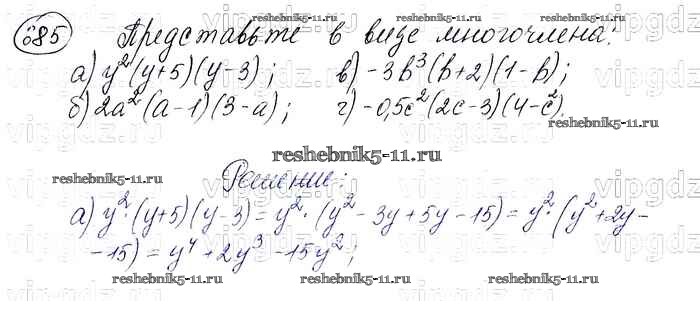 685 Представьте в виде многочлена:
а) y²(y+5)(y-3); в) -3b³(b+2)(1-b);
б) 2a²(a-1)(3-a); г) -0,5c²(2c-3)(4-c²).
reshebnik5-11.ru
Решение:
а) y²·(y+5)(y-3) = y²·(y²-3y+5y-15) = y²·(y²+2y-
-15) = y⁴+2y³-15y²;